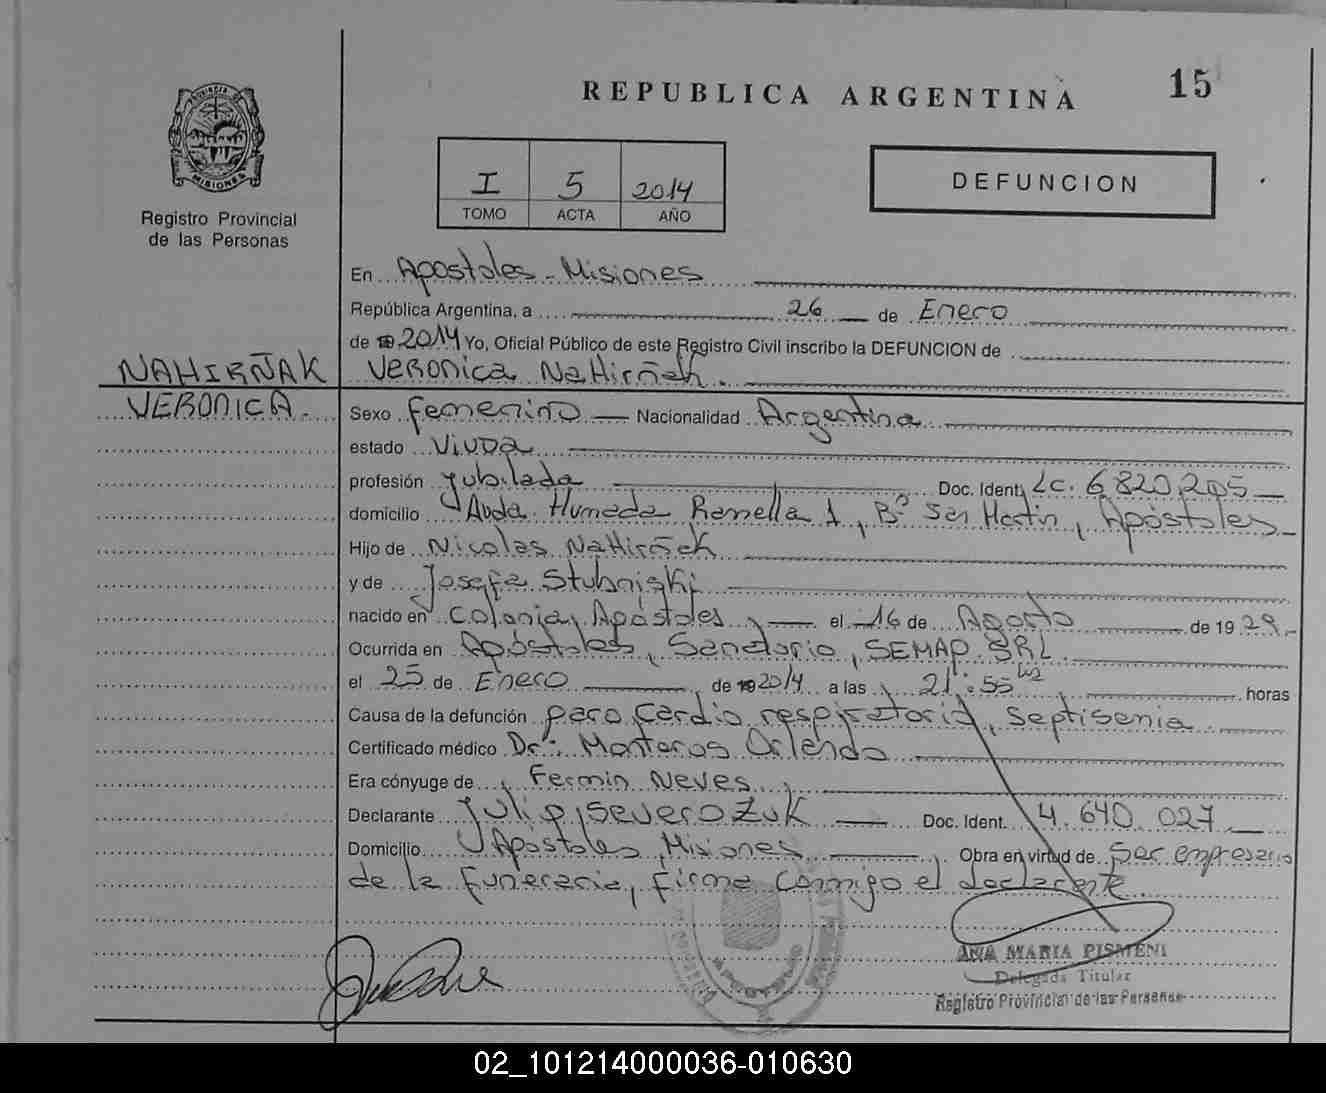 REPUBLICA ARGENTINA
15
PROVINCIA DE
MISIONES
Registro Provincial
de las Personas
I 5 2014
TOMO ACTA AÑO
DEFUNCION
En Apostoles - Misiones
República Argentina, a 26 de Enero
de 2014 Yo, Oficial Público de este Registro Civil inscribo la DEFUNCION de
NAHIRÑAK Veronica NaHirñak.
VERONICA. Sexo femenino Nacionalidad Argentina
estado Viuda
profesión Jubilada Doc. Ident. Lc. 6.820.205
domicilio Avda. Humada Ramella 1, Bº San Martin, Apóstoles
Hijo de Nicolas NaHirñak
y de Josefa Stubniski
nacido en Colonia, Apóstoles el 16 de Agosto de 1929
Ocurrida en Apóstoles, Sanatorio, SEMAP. SRL.
el 25 de Enero de 2014 a las 21:55 horas
Causa de la defunción paro cardio respiratorio, septisemia
Certificado médico Dr: Monteros Orlando
Era cónyuge de Fermin Neves
Declarante Julio Severo Zuk Doc. Ident. 4.640.027
Domicilio Apóstoles, Misiones Obra en virtud de ser empresario
de la funeraria, firma conmigo el declarante
ANA MARIA PISMENI
Delegada Titular
Registro Provincial de las Personas
02_101214000036-010630